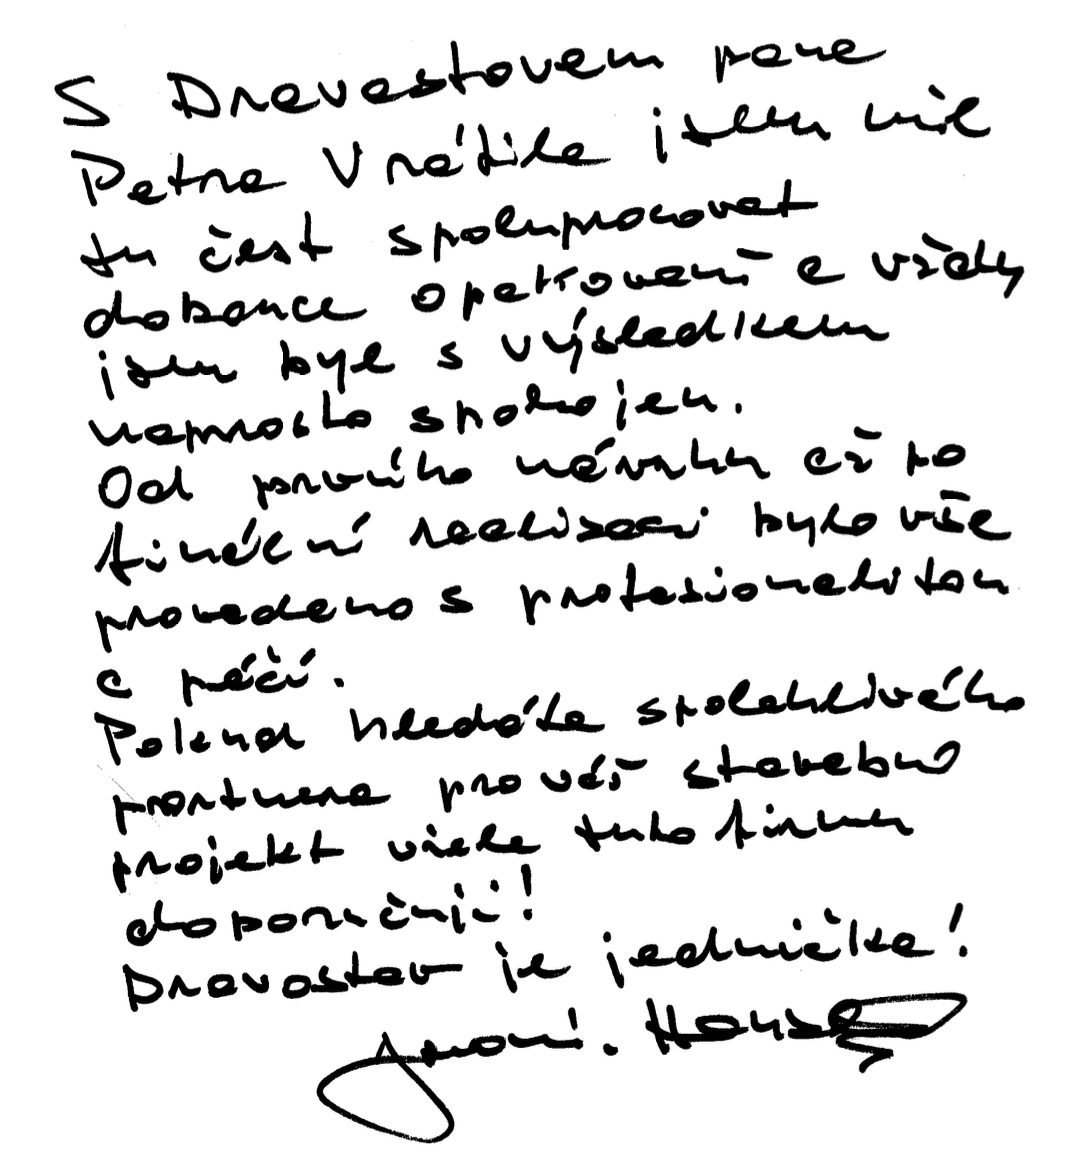 S Dravostavem pana
Petra Vrátila jsem měl
tu čest spolupracovat
dokonce opakovaně a vždy
jsem byl s výsledkem
naprosto spokojen.
Od prvního návrhu až po
finální realizaci bylo vše
provedeno s profesionalitou
a péčí.
Pokud hledáte spolehlivého
partnera pro váš stavební
projekt vřele tuto firmu
doporučuji!
Dravostav je jednička!